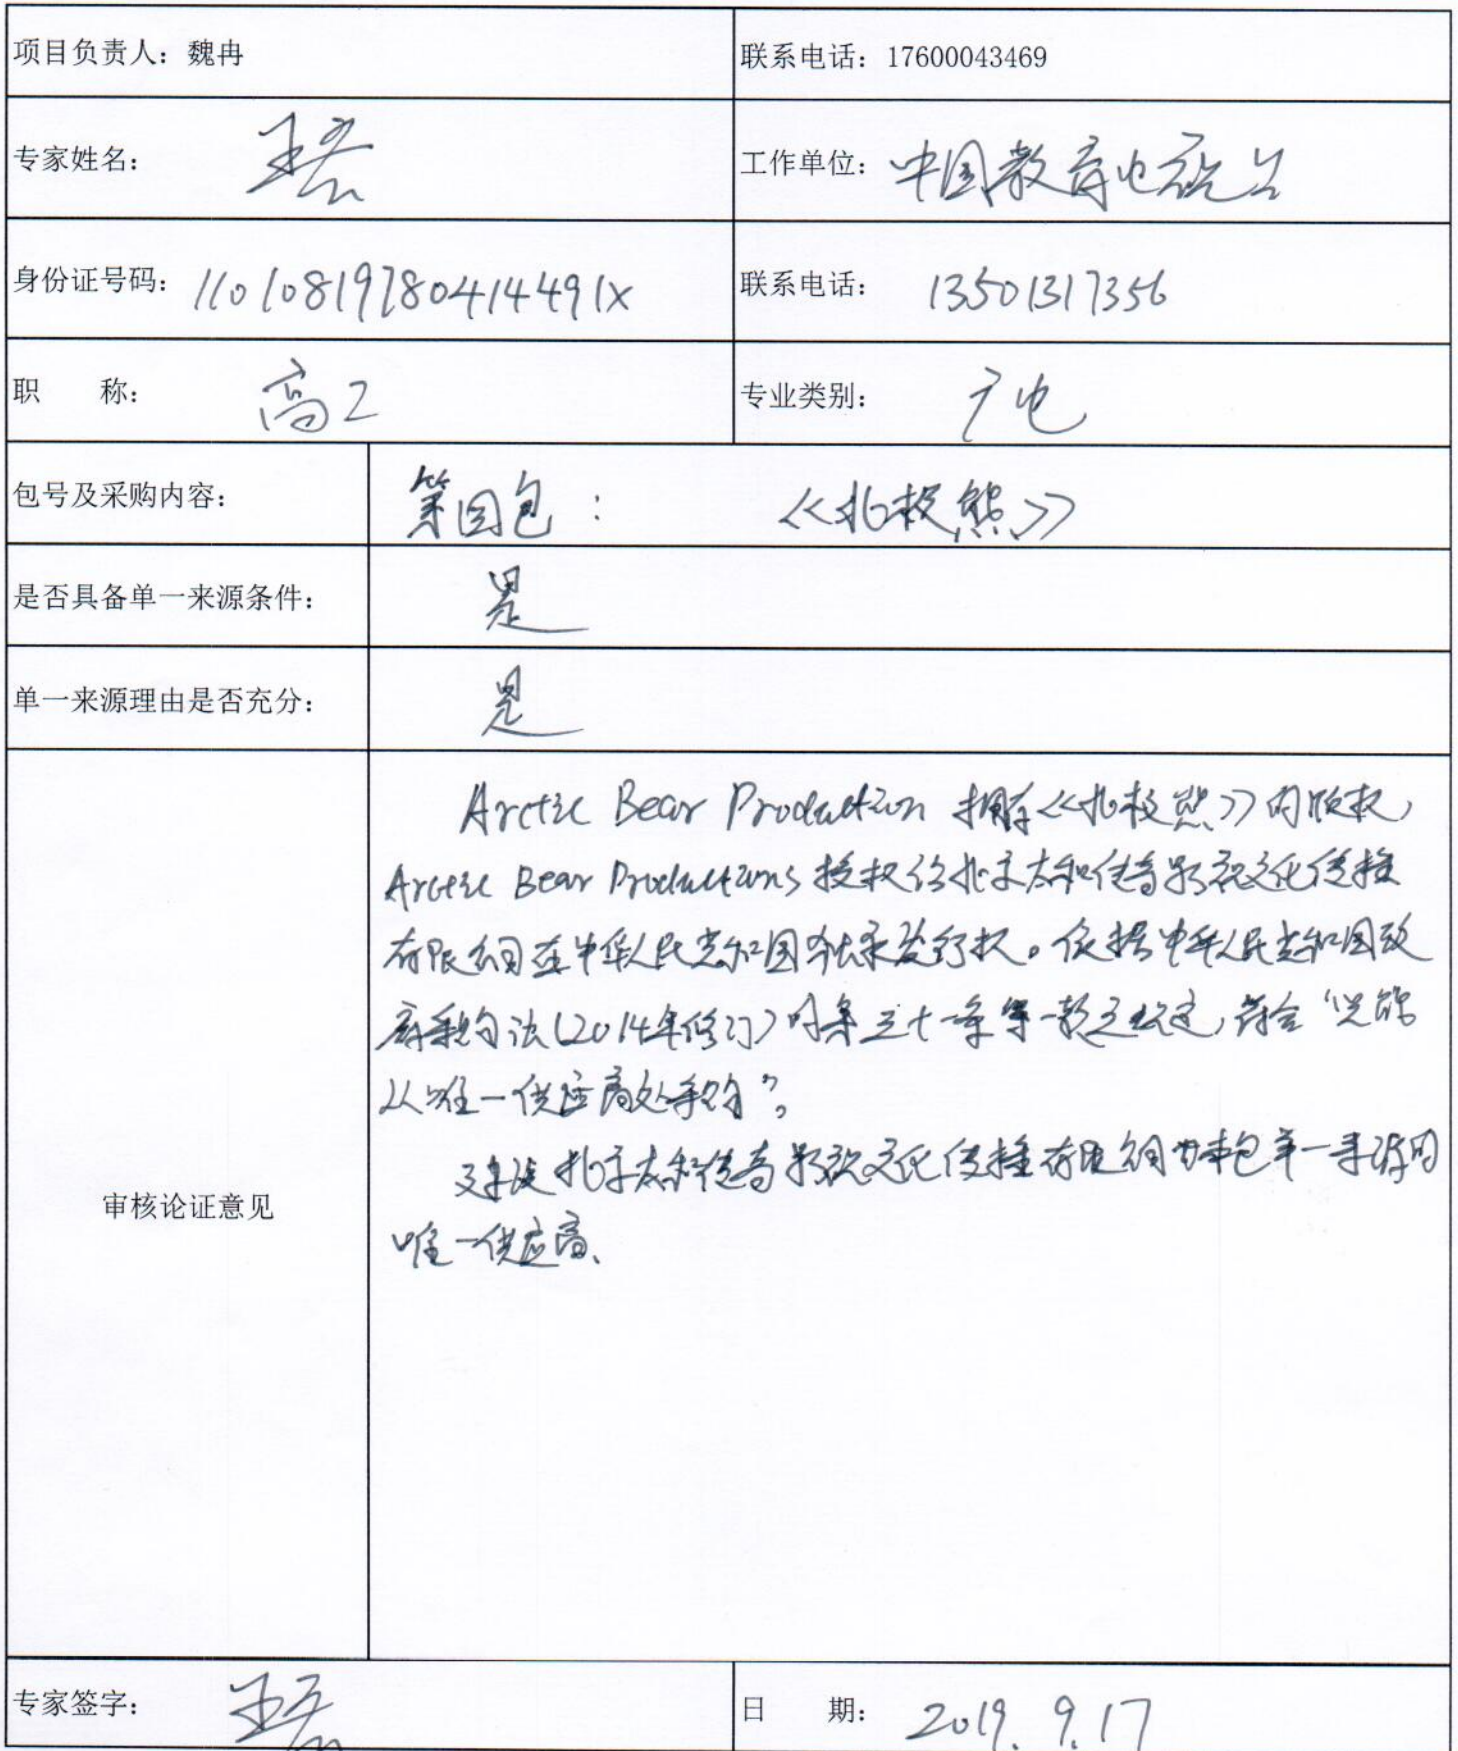 项目负责人：魏冉
联系电话：17600043469
专家姓名：
工作单位：中国教育电视台
身份证号码：11010819780414491X
联系电话：13501317356
职　　称：高工
专业类别：广电
包号及采购内容：第四包：《北极熊》
是否具备单一来源条件：是
单一来源理由是否充分：是
审核论证意见
Arctic Bear Production 拥有《北极熊》的版权，
Arctic Bear Productions 授权给北京太和传奇影视文化传播
有限公司在中华人民共和国独家发行权。依据中华人民共和国政
府采购法(2014年修订)的第三十一条第一款之规定，符合"只能
从唯一供应商处采购"。
建议北京太和传奇影视文化传播有限公司为本包单一来源的
唯一供应商、
专家签字：
日　　期：2019.9.17